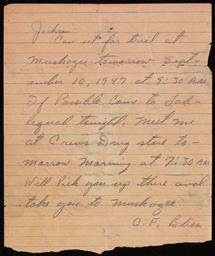 Jackson
Case set for trial at
Muskogee tomorrow Sept-
ember 10, 1947 at 9:30 A.M.
If Possible Come to Tah-
lequah tonight, Meet me
at Crews Drug store to-
morrow Morning at 7:30 AM
Will Pick you up there and
take you to muskogee.
C. F. Bliss